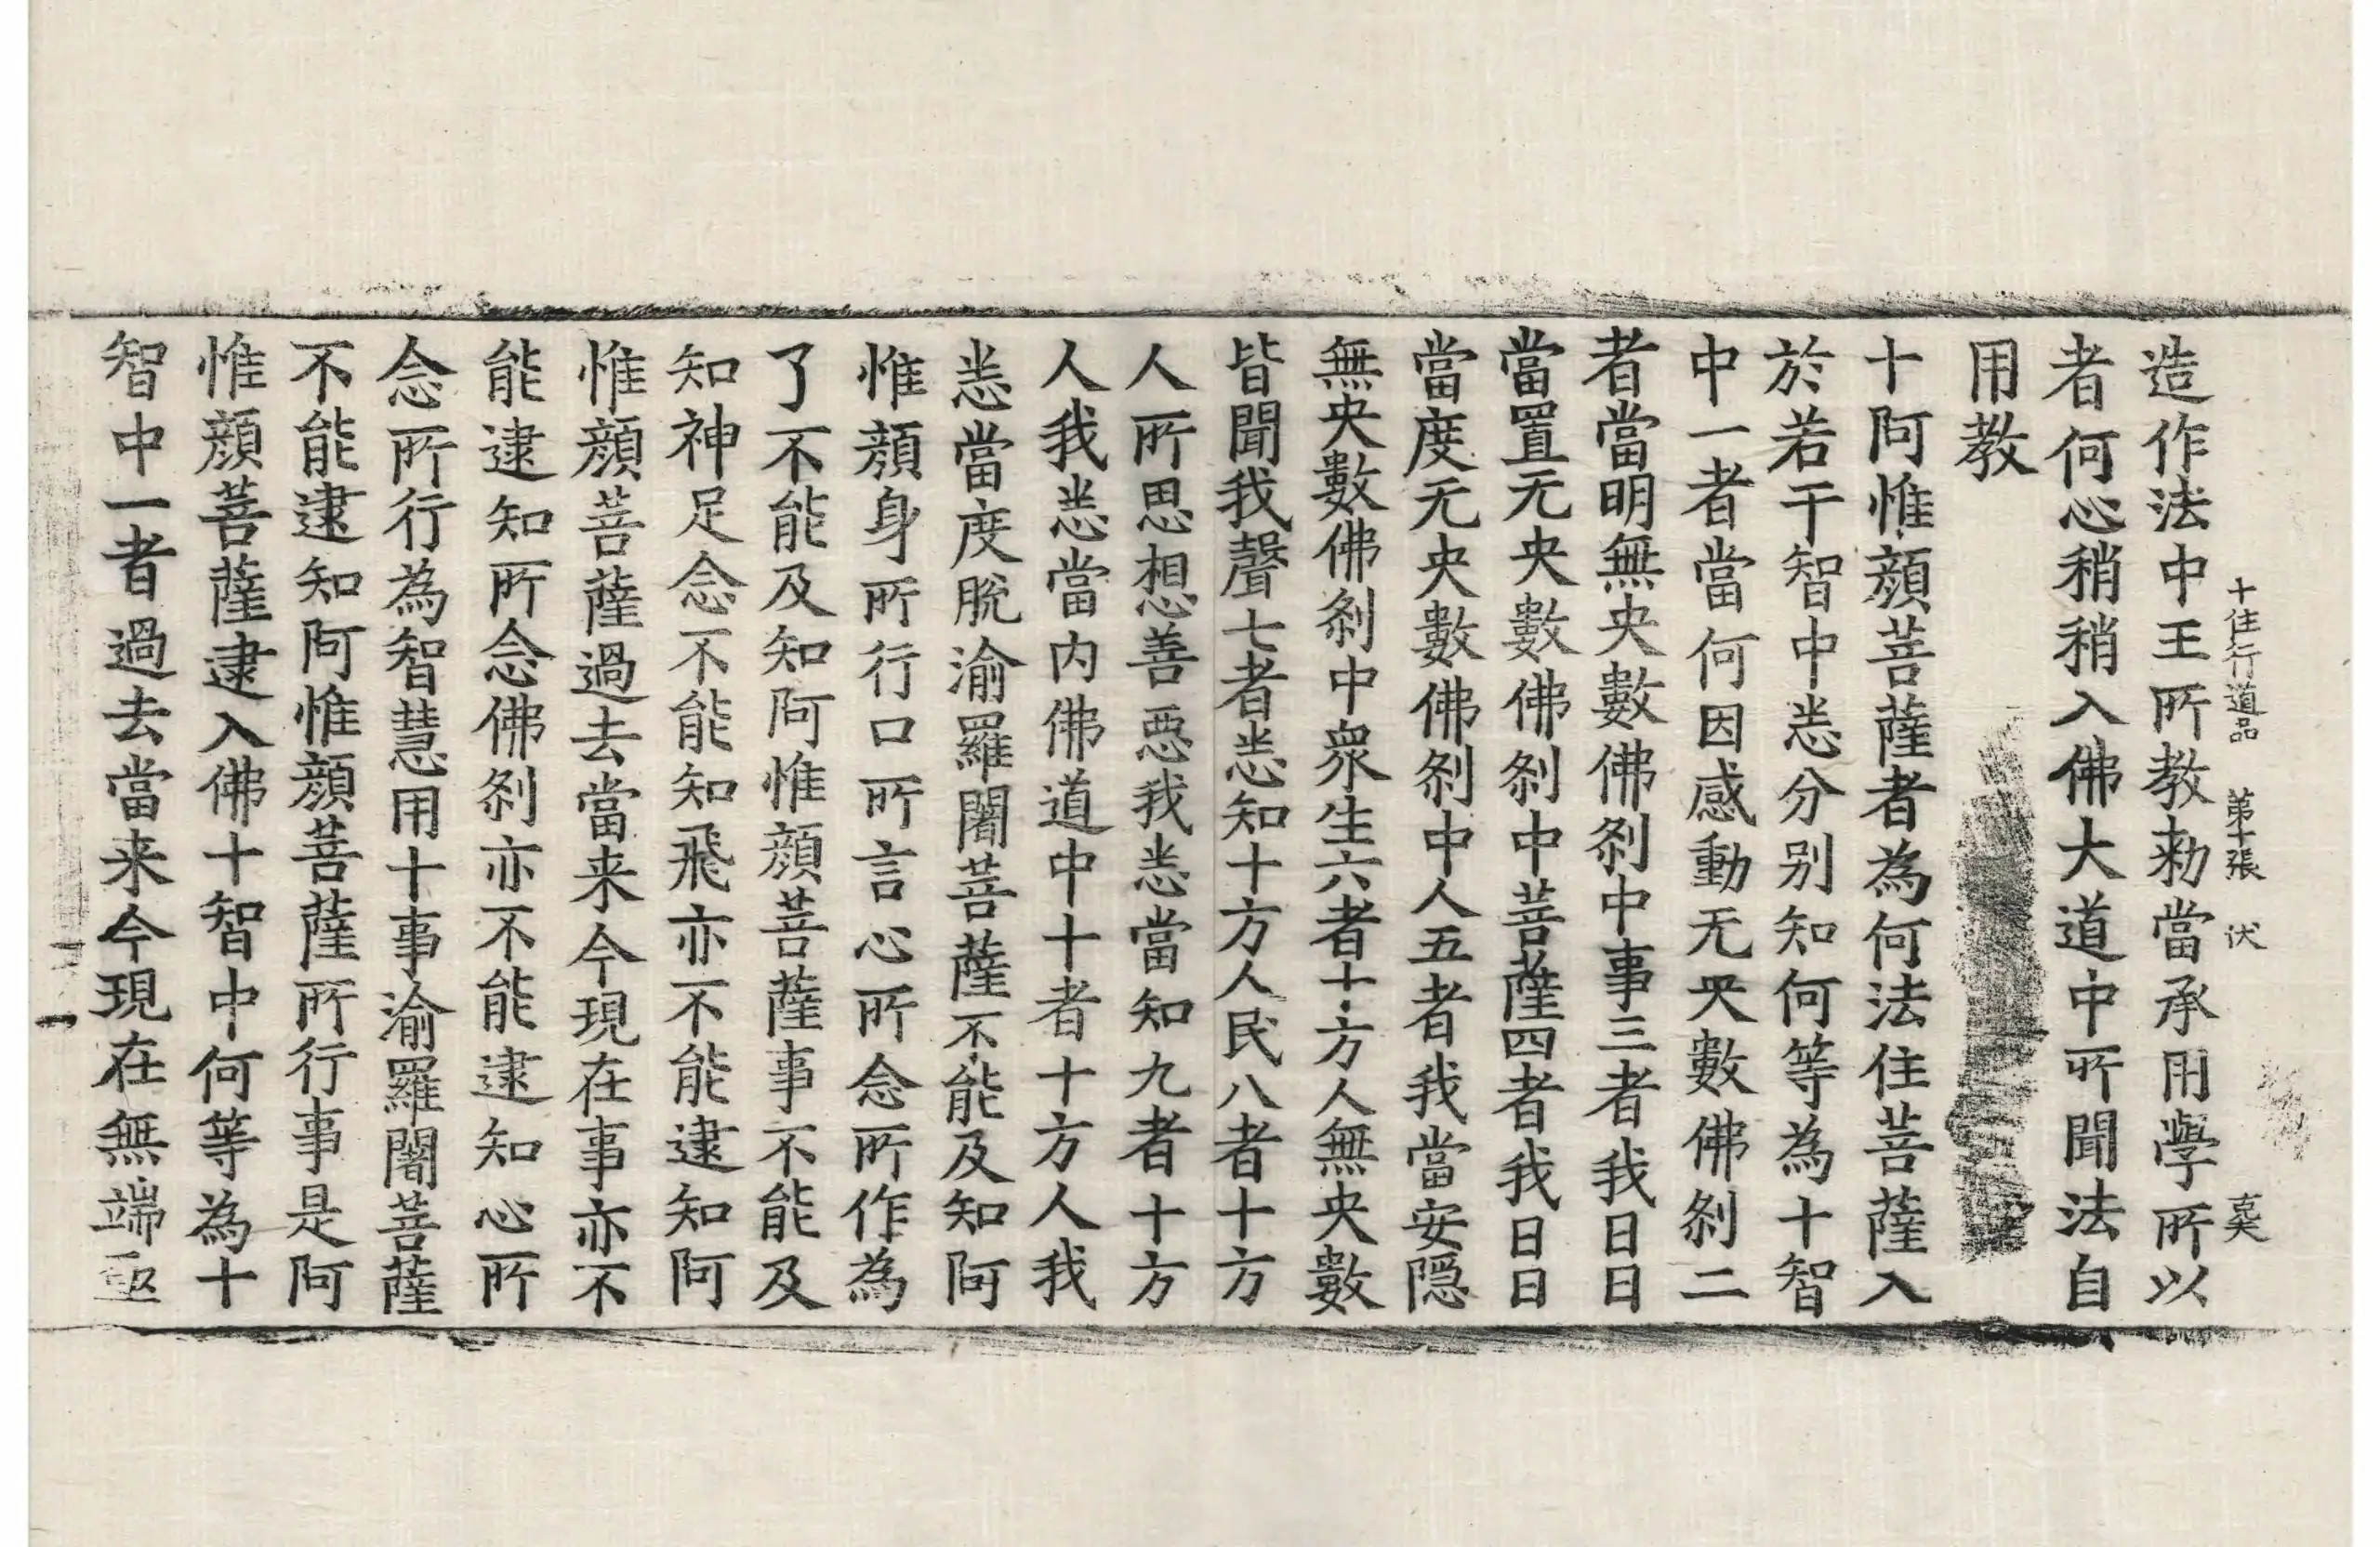 十住行道品 第十張 伏
造作法中王所教勑當承用學所以
者何心稍稍入佛大道中所聞法自
用教
十阿惟顔菩薩者為何法住菩薩入
於若干智中悉分别知何等為十智
中一者當何因感動无央數佛刹二
者當明無央數佛刹中事三者我日日
當置无央數佛刹中菩薩四者我日日
當度无央數佛刹中人五者我當安隠
無央數佛刹中衆生六者十方人無央數
皆聞我聲七者悉知十方人民八者十方
人所思想善惡我悉當知九者十方
人我悉當内佛道中十者十方人我
悉當度脫渝羅闍菩薩不能及知阿
惟顔身所行口所言心所念所作為
了不能及知阿惟顔菩薩事不能及
知神足念不能知飛亦不能逮知阿
惟顔菩薩過去當来今現在事亦不
能逮知所念佛刹亦不能逮知心所
念所行為智慧用十事渝羅闍菩薩
不能逮知阿惟顔菩薩所行事是阿
惟顔菩薩逮入佛十智中何等為十
智中一者過去當来今現在無端